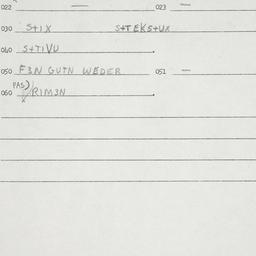 022 — 023 —
030 S+IX S+TEKS+UX
040 S+TIVU
050 F3N GUTN WEDER 051 —
PAS)
060 RIM3N
X